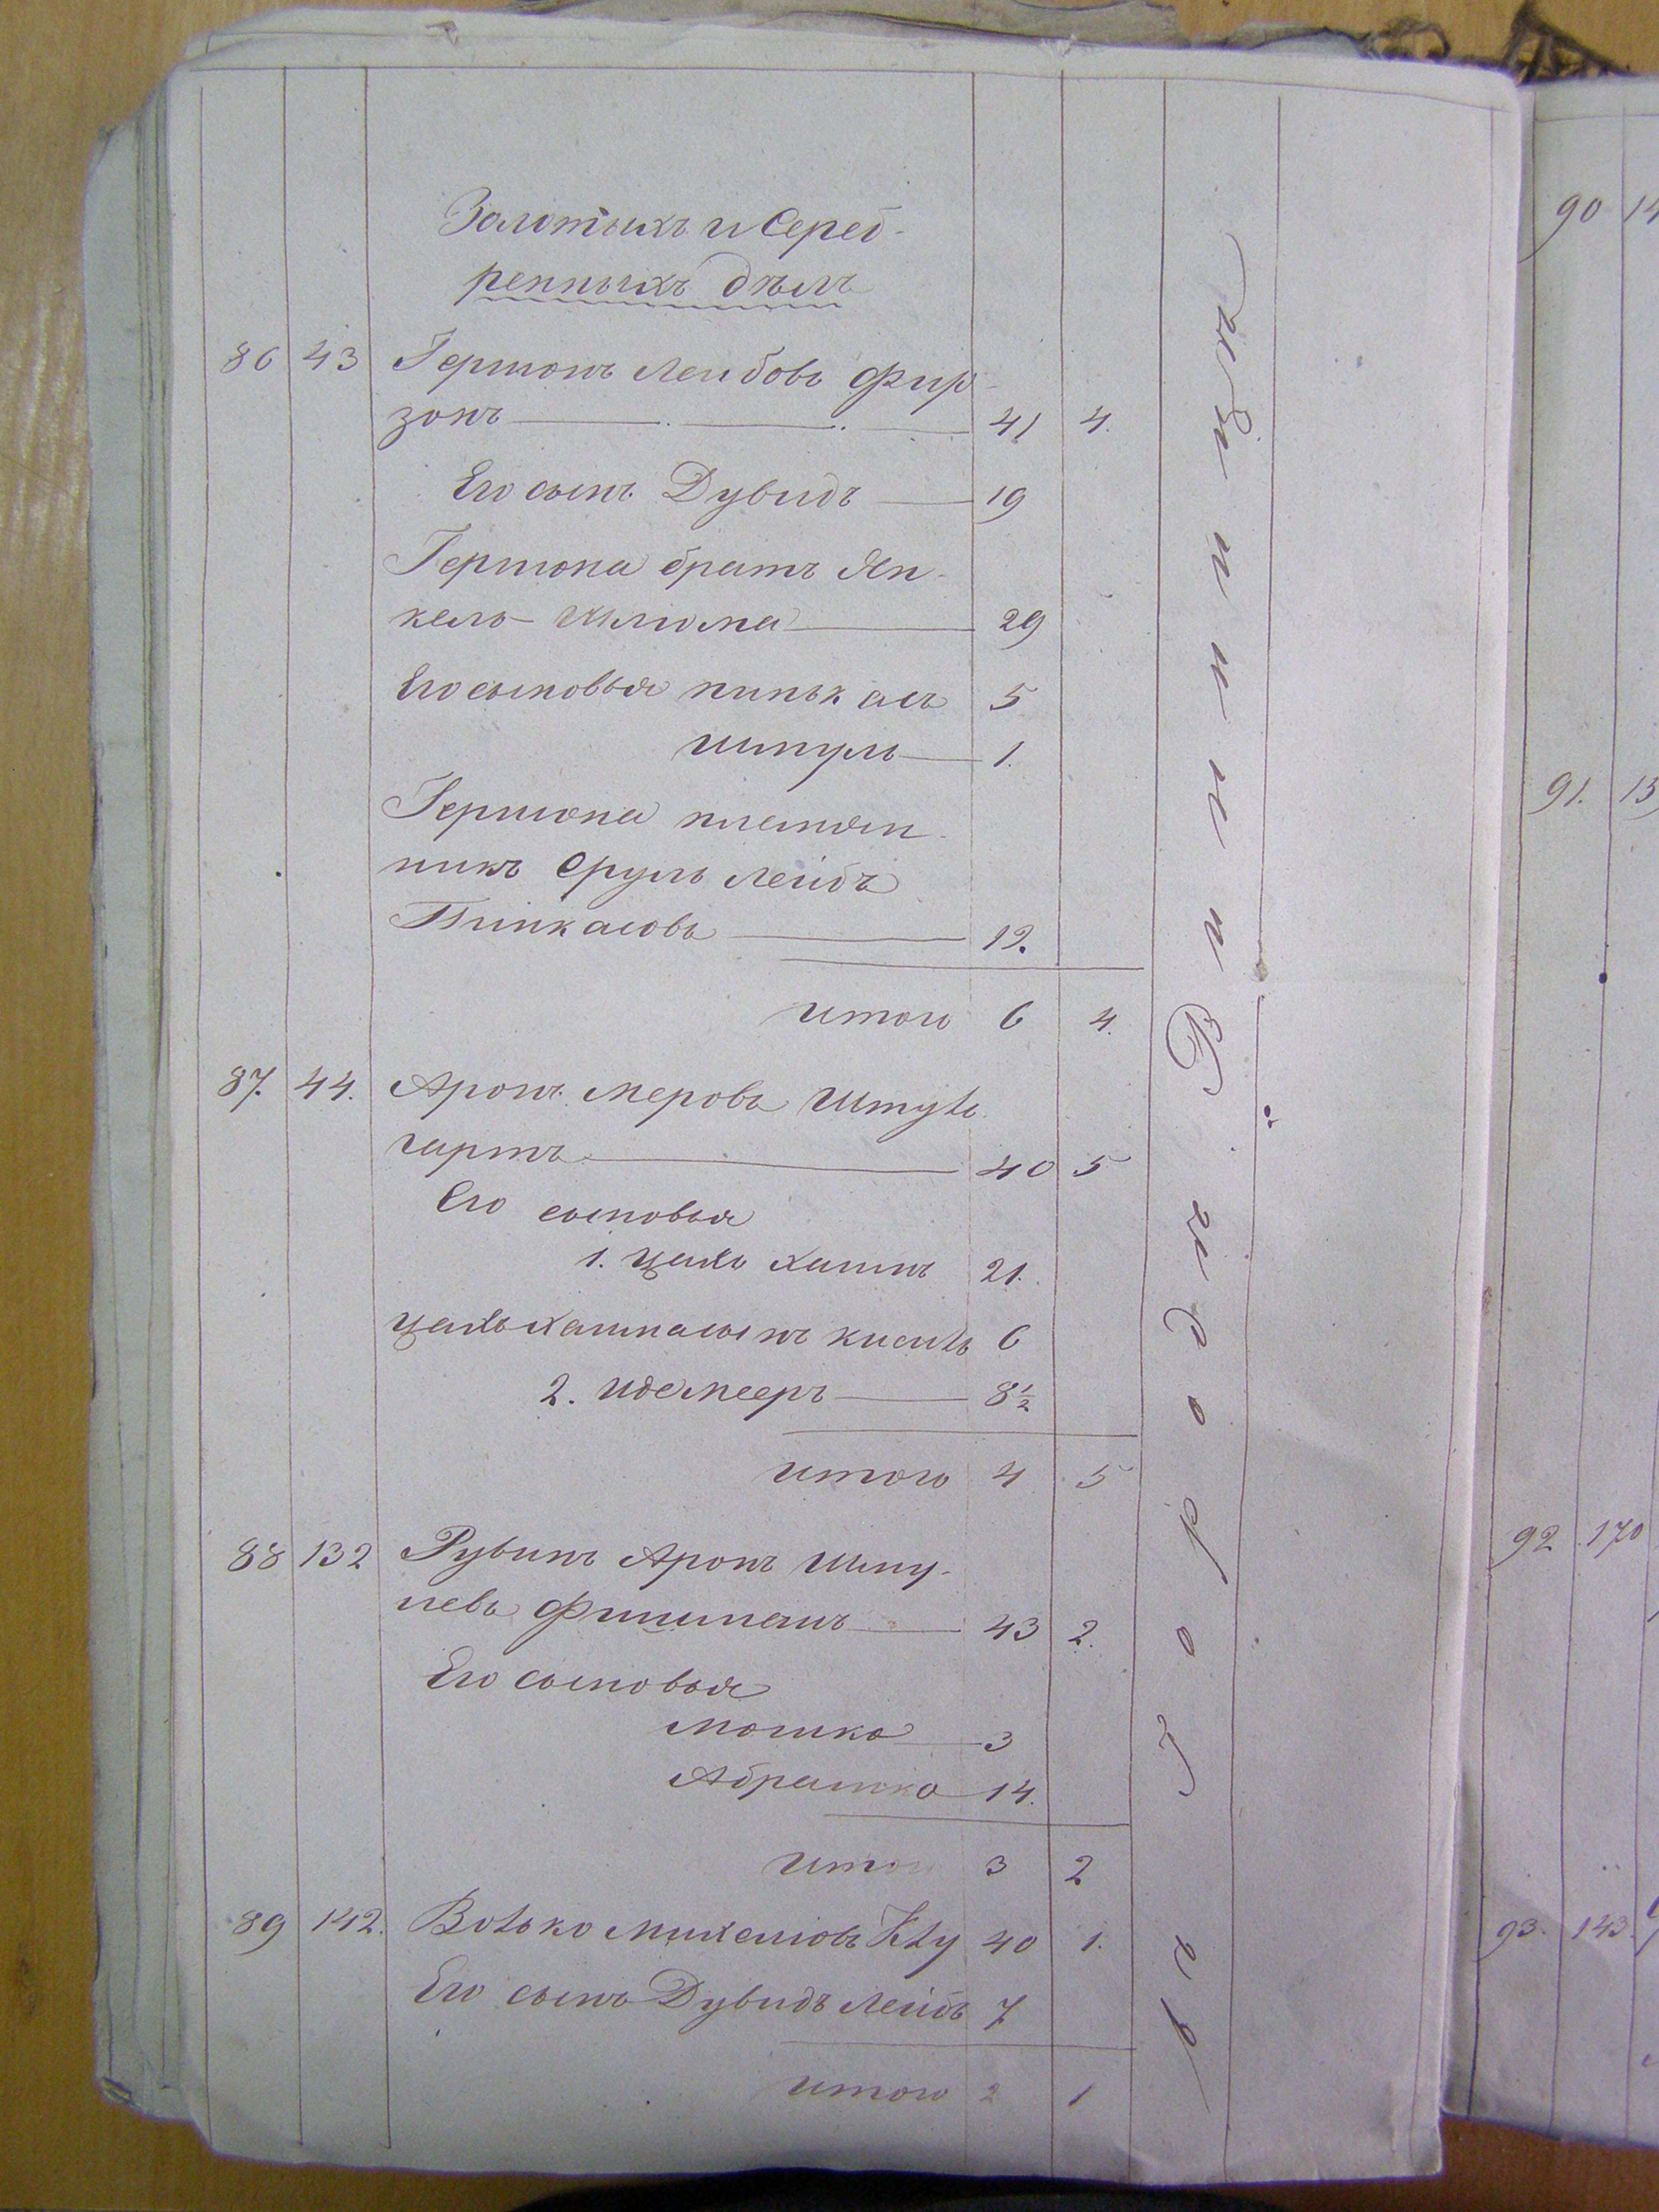 Золотыхъ и Сереб-
ренныхъ дѣлъ
86 43 Гершонъ Леибовъ Фир-
зонъ 41 4.
Его сынъ Дувидъ 19
Гершона братъ Ян-
кель-Шліома 29
Его сыновья Пинькасъ 5
Шмуль 1.
Гершона племян-
никъ Сруль Лейбъ
Пинкасовъ 12.
итого 6 4.
87. 44. Аронъ Меровъ Штут-
гартъ 40 5
Его сыновья
1. Цаль Хаимъ 21.
Цаль Хаима сынъ 6
2. Иде Мееръ 8½
итого 4 5
88 132 Рувинъ Аронъ Шму-
левъ Фишманъ 43 2.
Его сыновья
Мошко 3
Абрамко 14.
итого 3 2
89 142. Михелиовъ 40 1.
Его сынъ Дувидъ Лейбъ 7
итого 2 1
90 14
91. 15
92 170
93. 143.